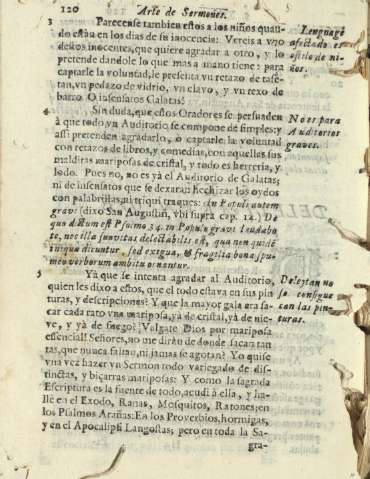 120 Arte de Sermones.
3 Parecense tambien estos a los niños quan-
do estàn en los dias de su inocencia: Vereis a vno
destos inocentes, que quiere agradar a otro, y lo
pretende dandole lo que mas a mano tiene: para
captarle la voluntad, le presenta vn retazo de tafe-
tan, vn pedazo de vidrio, vn clavo, y vn texo de
barro. O insensatos Galatas!
Lenguage
afectado es
estilo de ni-
ños.
4 Sin duda, que estos Oradores se persuaden
à que todo vn Auditorio se compone de simples: y
assi pretenden agradarlo, o captarle la voluntad
con retazos de libros, y comedias, con aquellas sus
malditas mariposas de cristal, y todo es herreria, y
lodo. Pues no, no es yà el Auditorio de Galatas;
ni de insensatos que se dexaràn hechizar los oydos
con palabrillas, ni triqui traques: In Populo autem
gravi (dixo San Augustin, vbi suprà cap. 14.) De
quo dictum est Psalmo 34. in Populo gravi laudabo
te, nec illa suavitas delectabilis est, qua non quidè
iniqua dicuntur, sed exigua, & fragilia bona spu-
meo verborum ambitu ornantur.
No es para
Auditorios
graves.
5 Yà que se intenta agradar al Auditorio,
quien les dixo a estos, que el todo estava en sus pin
turas, y descripciones? Y que la mayor gala era sa-
car cada rato vna mariposa, yà de cristal, yà de nie-
ve, y yà de fuego? Valgate Dios por mariposa
essencial! Señores, no me diràn de donde sacan tan
tas, que nunca faltan, ni jamas se agotan? Yo quise
vna vez hazer vn Sermon todo variegado de dis-
tintas, y bizarras mariposas: Y como la sagrada
Escriptura es la fuente de todo, acudì a ella, y ha-
llè en el Exodo, Ranas, Mosquitos, Ratones; en
los Psalmos Arañas: En los Proverbios, hormigas,
y en el Apocalipsi Langostas; pero en toda la Sa-
gra-
Deleytan no
se consigue
con las pin-
turas.